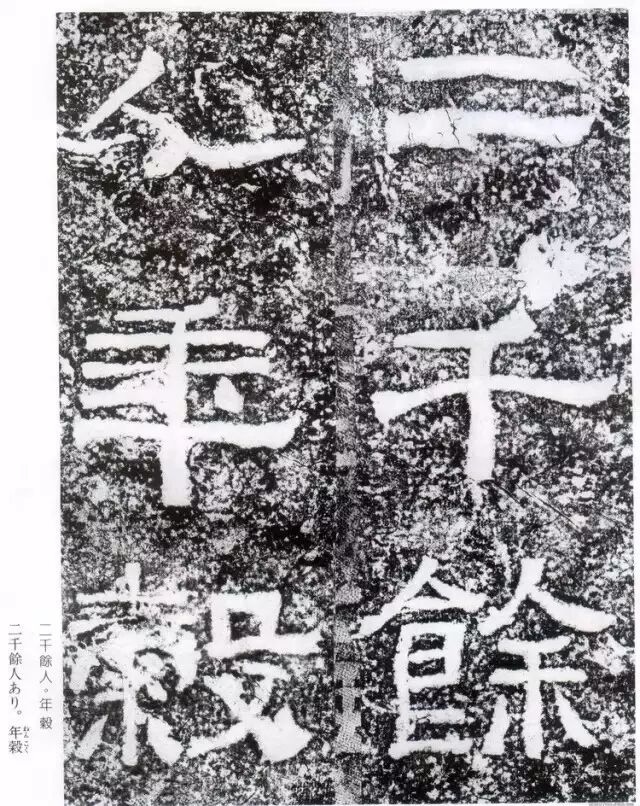 二千餘
人年穀
二千餘人。年穀
二千餘人あり。年穀
ねんこく